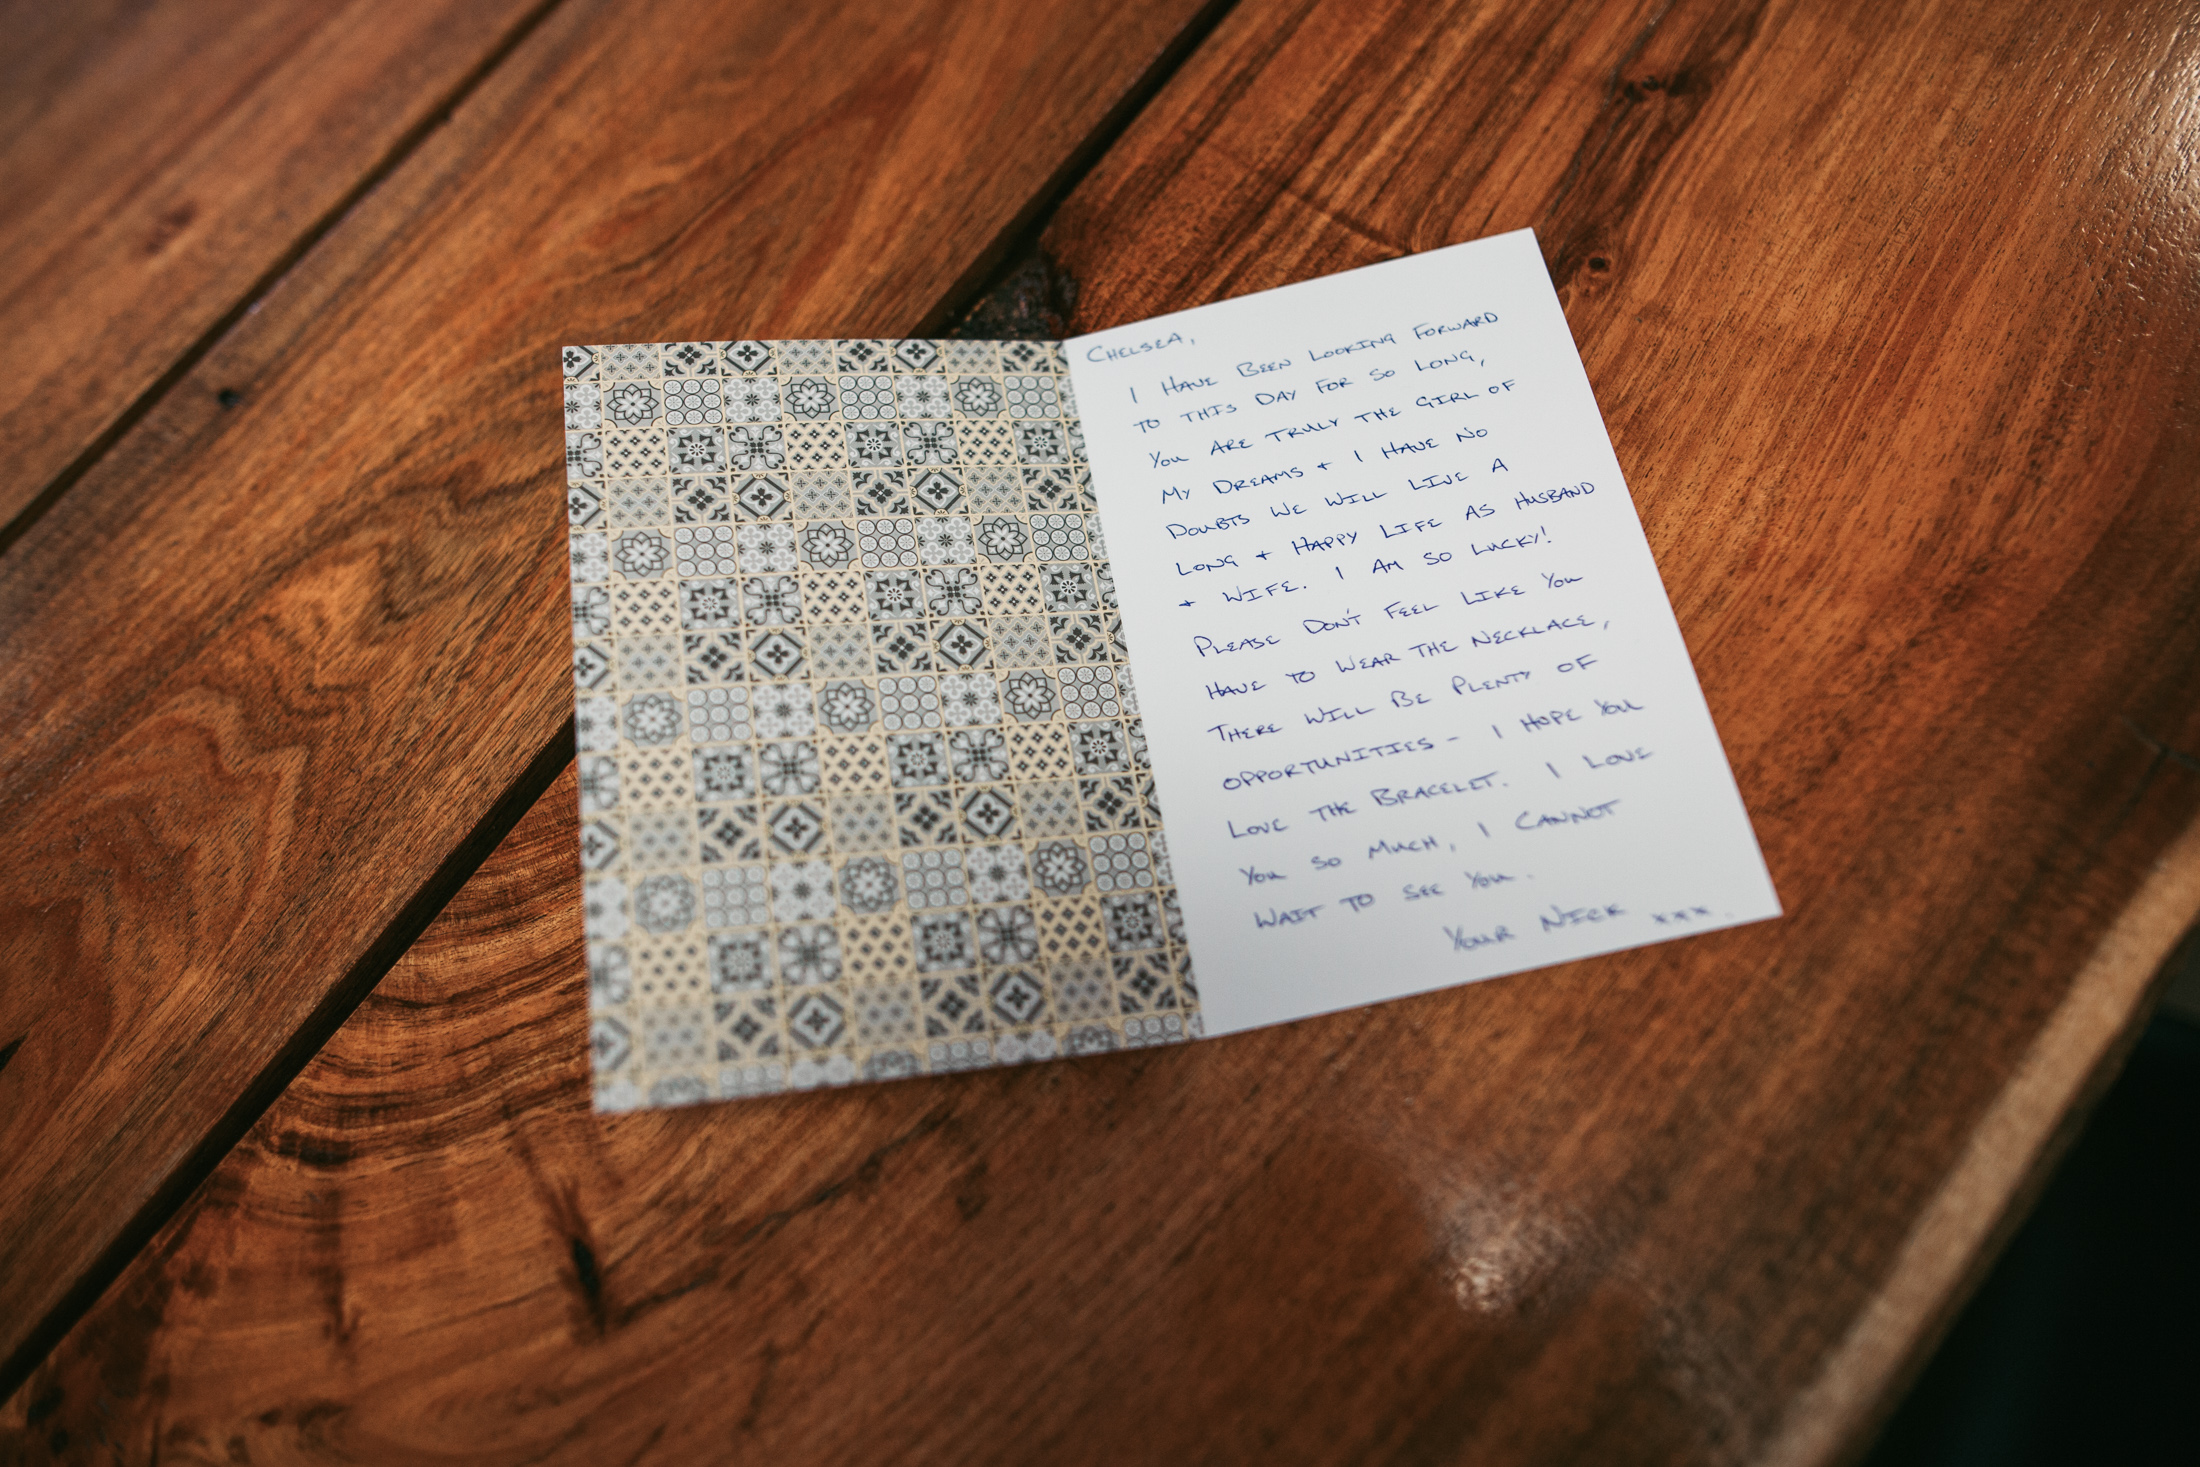 CHELSEA,
I HAVE BEEN LOOKING FORWARD
TO THIS DAY FOR SO LONG,
YOU ARE TRULY THE GIRL OF
MY DREAMS + I HAVE NO
DOUBTS WE WILL LIVE A
LONG + HAPPY LIFE AS HUSBAND
+ WIFE. I AM SO LUCKY!
PLEASE DON'T FEEL LIKE YOU
HAVE TO WEAR THE NECKLACE,
THERE WILL BE PLENTY OF
OPPORTUNITIES - I HOPE YOU
LOVE THE BRACELET. I LOVE
YOU SO MUCH, I CANNOT
WAIT TO SEE YOU.
YOUR NICK xxx.